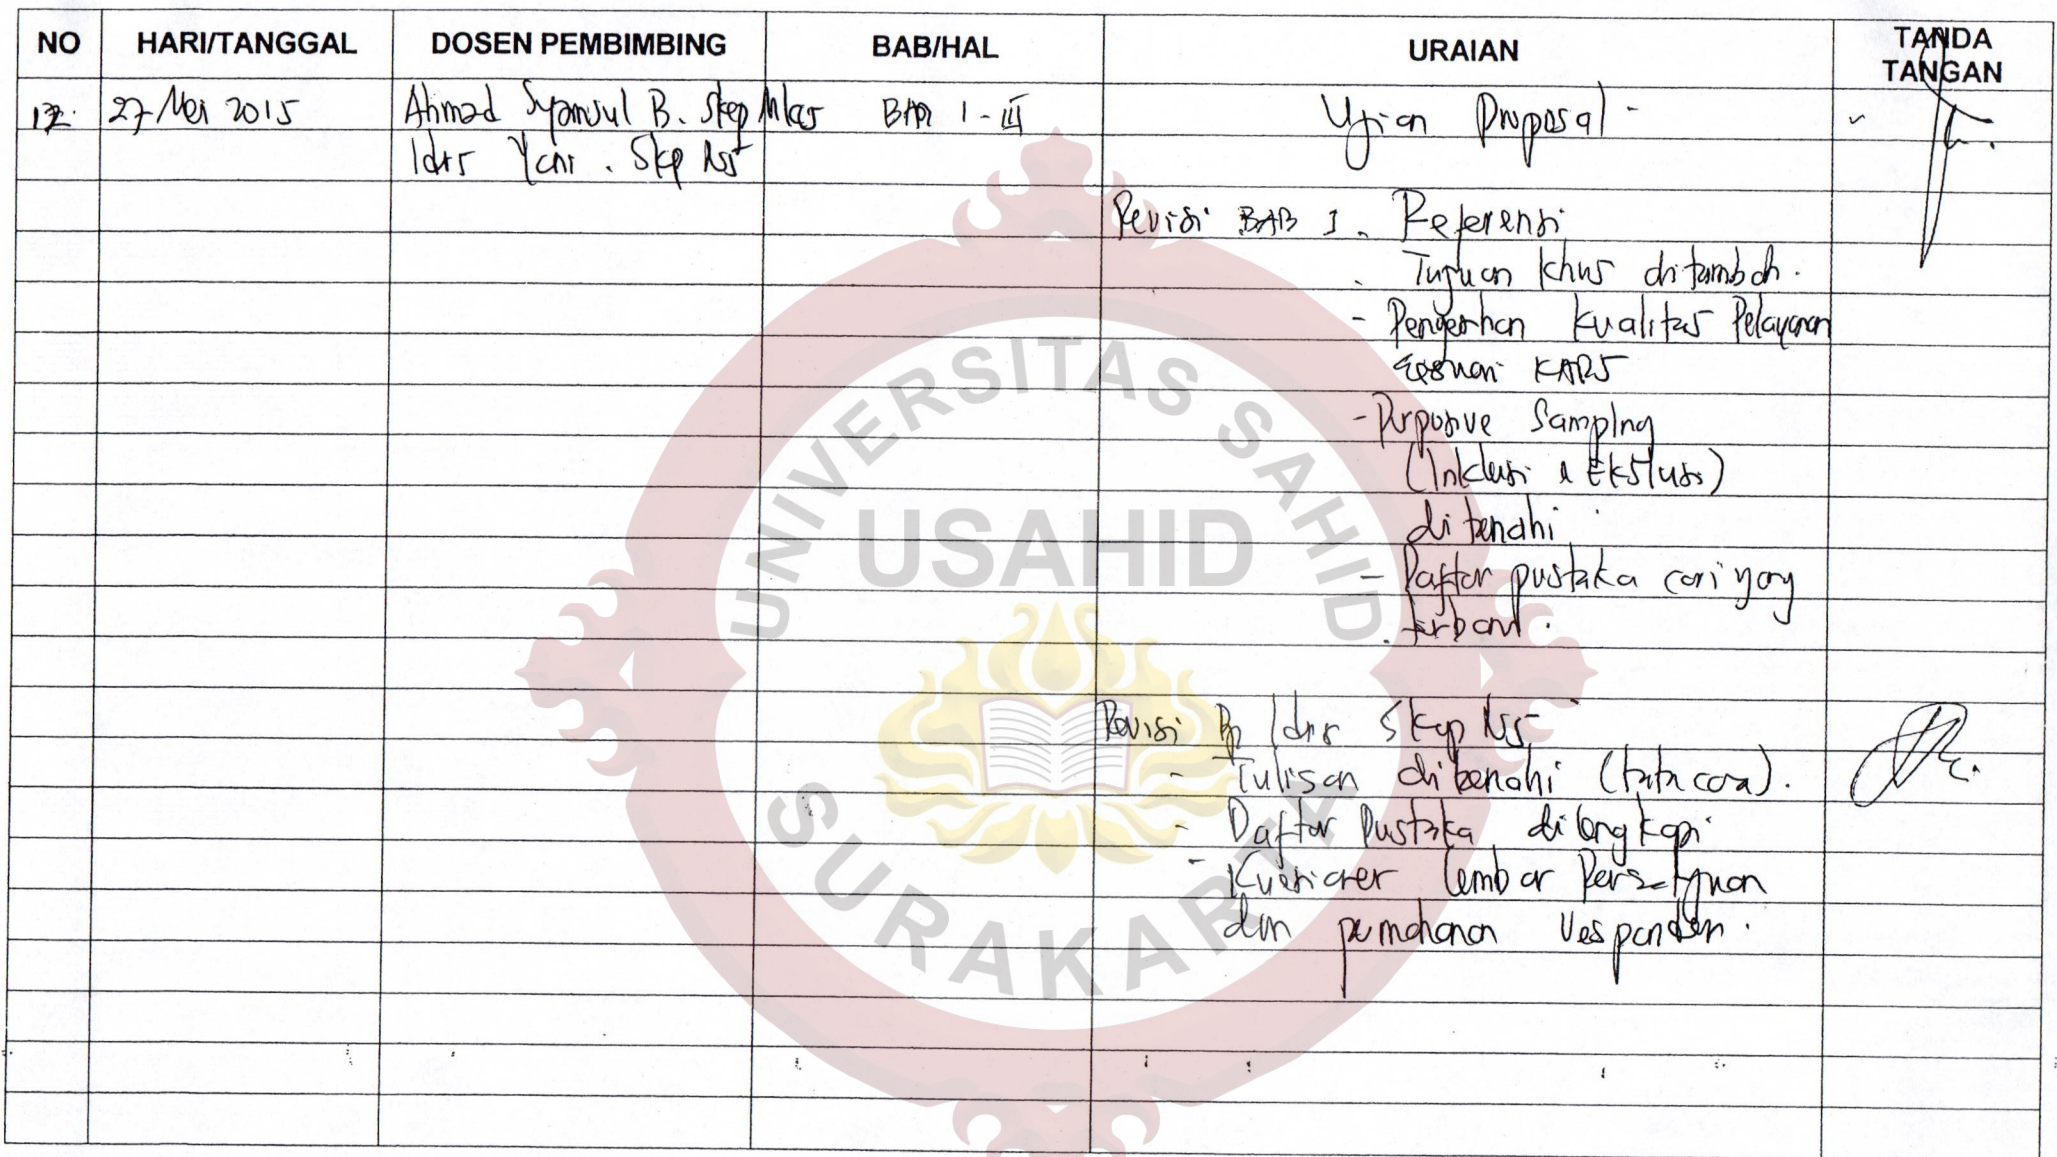 NO HARI/TANGGAL DOSEN PEMBIMBING BAB/HAL URAIAN TANDA TANGAN
12. 27 Mei 2015 Ahmad Syamsul B. Skep MKes BAB I - III Ujian Proposal
Idris Yani . Skp Ns
Revisi BAB I . Referensi
- Tujuan khus ditambah .
- Pengertian kualitas Pelayanan
sesuai KARS
- Purposive Sampling
(Inklusi & Eksklusi)
di benahi
- Daftar pustaka cari yang
terbaru .
Revisi Bp Idris Skep Ns
- Tulisan dibenahi (tata cara).
- Daftar Pustaka dilengkapi
- Kuesioner lembar Persetujuan
dan permohonan responden .
UNIVERSITAS SAHID
USAHID
SURAKARTA